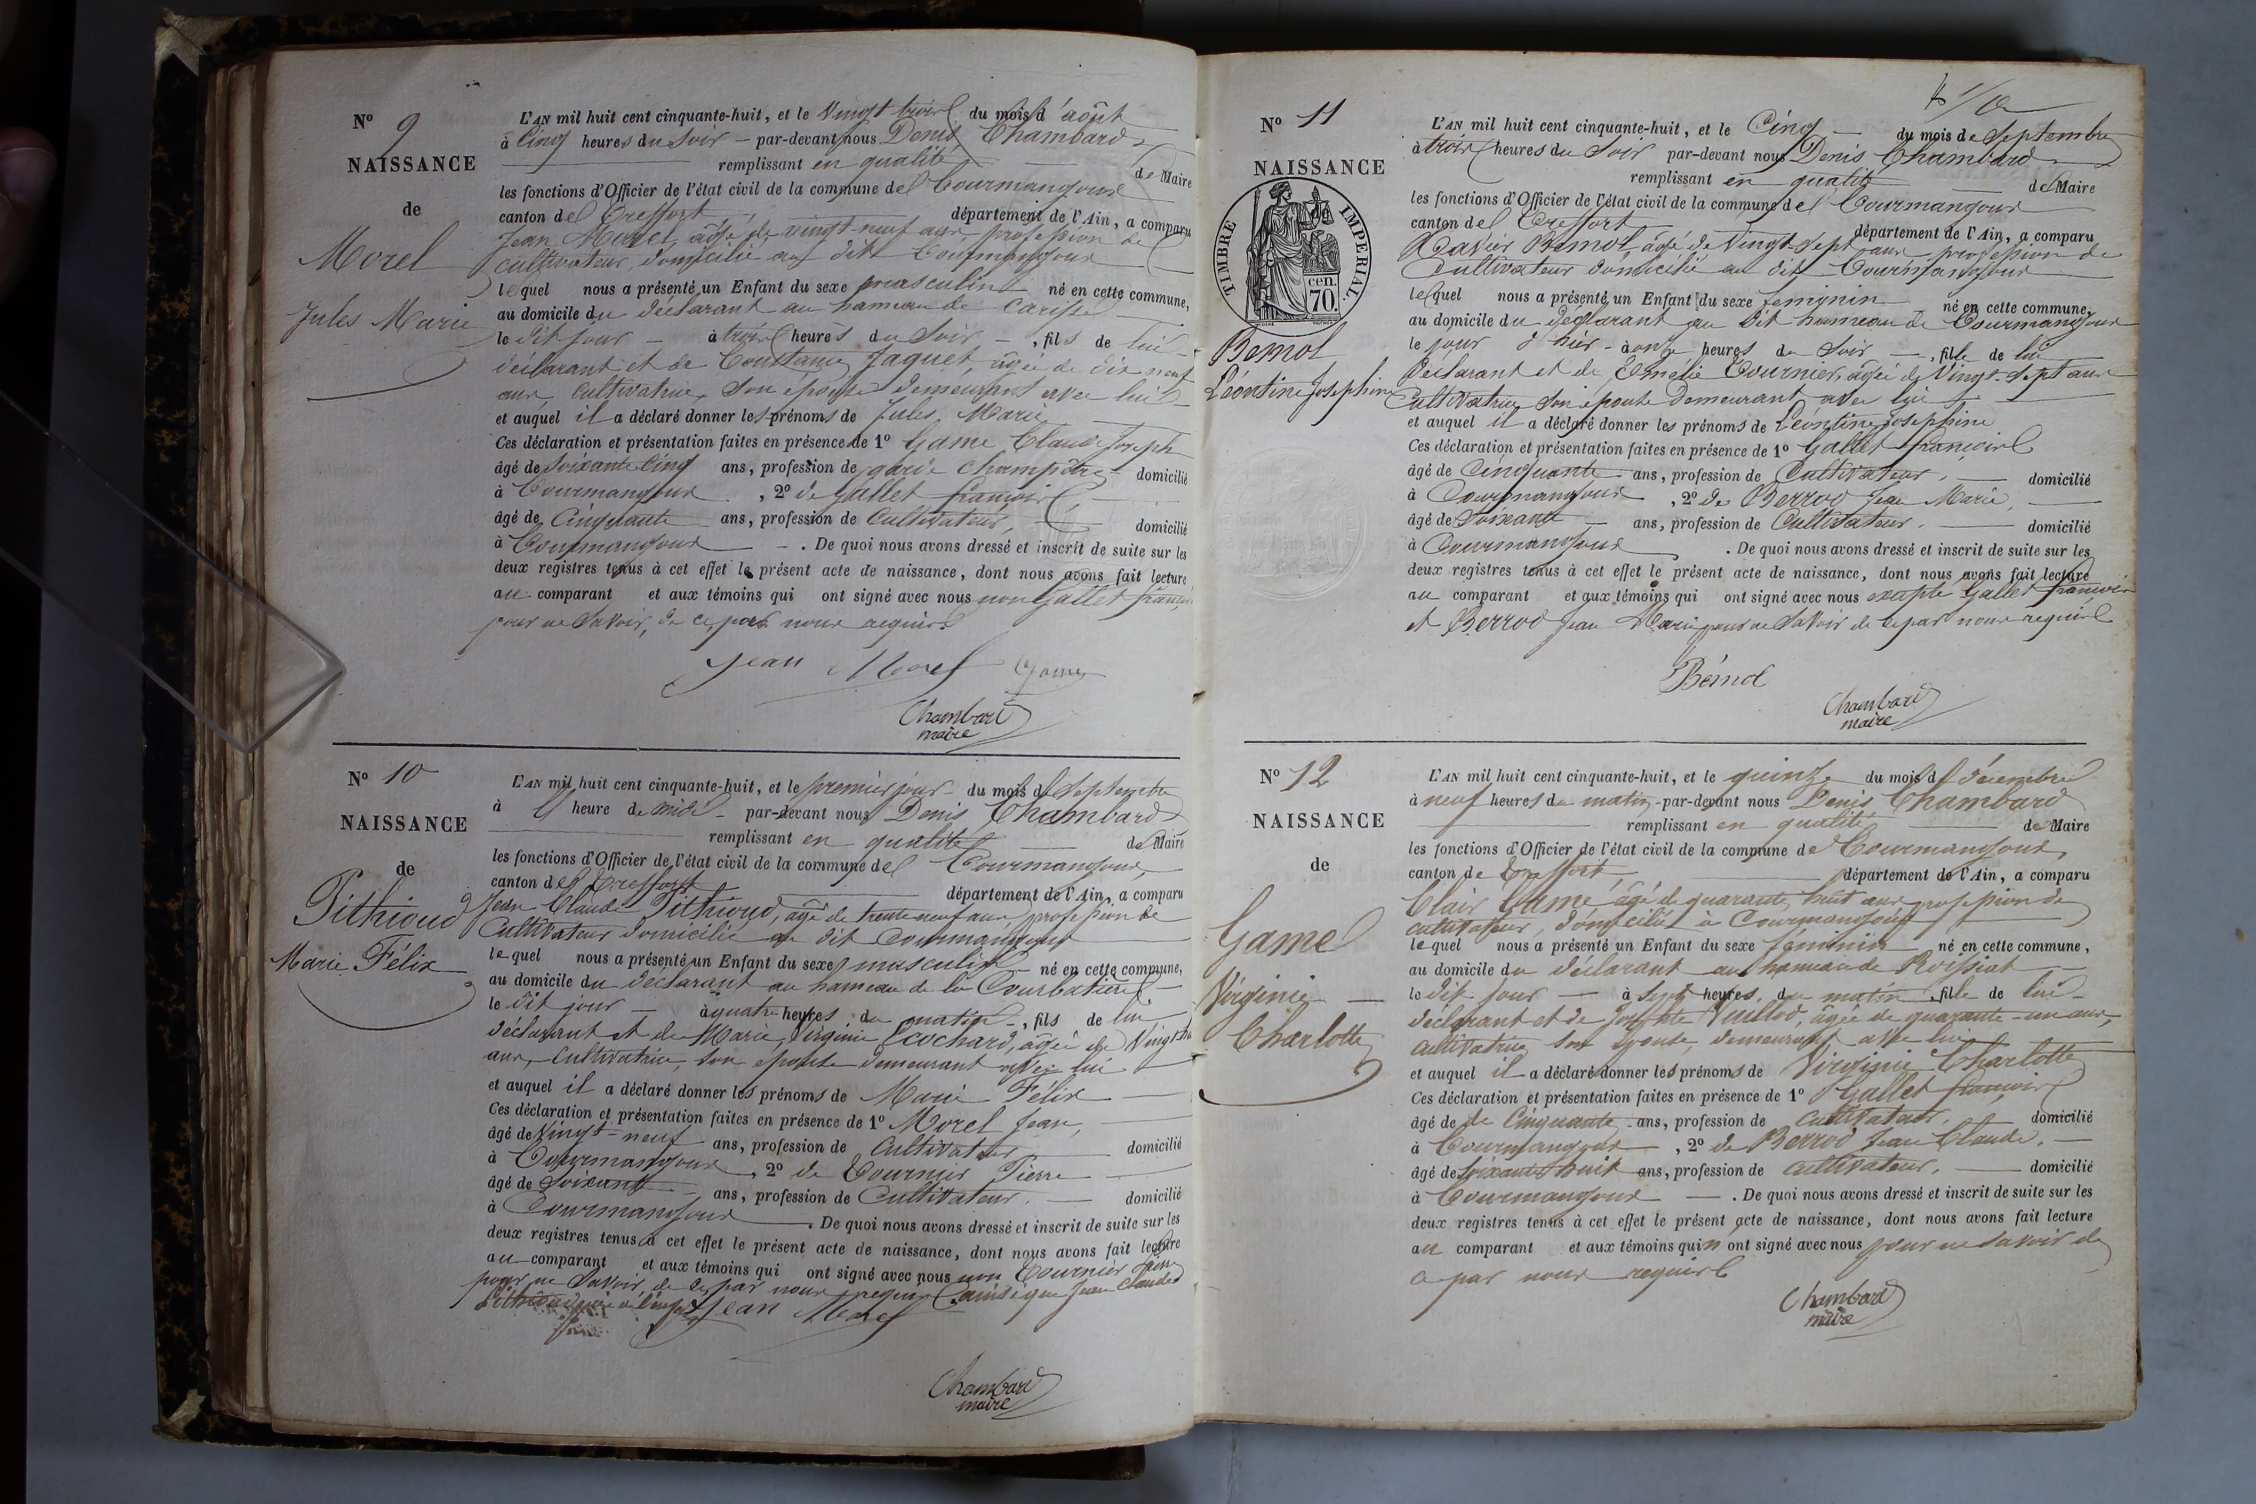 N° 9
NAISSANCE
de
Morel
Jules Marie
L'AN mil huit cent cinquante-huit, et le vingt trois du mois d'août
à Cinq heures du soir - par-devant nous Denis Chambard
remplissant en qualité de Maire
les fonctions d'Officier de l'état civil de la commune de Courmangoux
canton de Treffort département de l'Ain, a comparu
Jean Morel, âgé de vingt-neuf ans profession de
cultivateur, domicilié au dit Courmangoux
lequel nous a présenté un Enfant du sexe masculin né en cette commune,
au domicile du déclarant au hameau de
le dit jour - à trois heures du soir -, fils de lui
déclarant et de Constance Jaquet, âgée de dix neuf
ans, Cultivatrice, son épouse demeurant avec lui
et auquel il a déclaré donner les prénoms de Jules Marie
Ces déclaration et présentation faites en présence de 1° Game Claude Joseph
âgé de soixante cinq ans, profession de garde champêtre domicilié
à Courmangoux, 2° de Gallet françois
âgé de Cinquante ans, profession de Cultivateur, domicilié
à Courmangoux - . De quoi nous avons dressé et inscrit de suite sur les
deux registres tenus à cet effet le présent acte de naissance, dont nous avons fait lecture
au comparant et aux témoins qui ont signé avec nous non Gallet françois
pour ne savoir, de ce par nous requis
Jean Morel Game
Chambard
maire
N° 10
NAISSANCE
de
Pithioud
Marie Félix
L'AN mil huit cent cinquante-huit, et le premier jour du mois de Septembre
à heure de midi - par-devant nous Denis Chambard
remplissant en qualité de Maire
les fonctions d'Officier de l'état civil de la commune de Courmangoux,
canton de Treffort département de l'Ain, a comparu
Jean Claude Pithioud, âgé de trente neuf ans profession de
Cultivateur domicilié au dit Courmangoux
lequel nous a présenté un Enfant du sexe masculin né en cette commune,
au domicile du déclarant au hameau de la Courbatière
le dit jour à quatre heures du matin -, fils de lui
déclarant et de Marie Virginie Cochard, âgée de Vingt
ans, Cultivatrice, son épouse demeurant avec lui
et auquel il a déclaré donner les prénoms de Marie Félix
Ces déclaration et présentation faites en présence de 1° Morel Jean,
âgé de Vingt-neuf ans, profession de Cultivateur domicilié
à Courmangoux, 2° de Tournier Pierre
âgé de Soixante ans, profession de Cultivateur. domicilié
à Courmangoux . De quoi nous avons dressé et inscrit de suite sur les
deux registres tenus à cet effet le présent acte de naissance, dont nous avons fait lecture
au comparant et aux témoins qui ont signé avec nous non Tournier Pierre
pour ne savoir, de ce par nous requis ainsi que Jean Claude
Pithioud père de l'enfant Jean Morel
Chambard
maire
N° 11
NAISSANCE
TIMBRE IMPERIAL.
cen.
70.
Bémol
Léontine Josephine
L'AN mil huit cent cinquante-huit, et le Cinq du mois de Septembre
à trois heures du Soir par-devant nous Denis Chambard
remplissant en qualité de Maire
les fonctions d'Officier de l'état civil de la commune de Courmangoux
canton de Treffort département de l'Ain, a comparu
Xavier Bemol, âgé de Vingt-Sept ans profession de
Cultivateur domicilié au dit Courmangoux
lequel nous a présenté un Enfant du sexe feminin né en cette commune,
au domicile du déclarant au dit hameau de Courmangoux
le jour d'hier - à onze heures du Soir -, fille de lui
Déclarant et de Emélie Tournier, âgée de Vingt-Sept ans
Cultivatrice Son épouse Demeurant avec lui
et auquel il a déclaré donner les prénoms de Léontine Josephine
Ces déclaration et présentation faites en présence de 1° Gallet françois
âgé de Cinquante ans, profession de Cultivateur, domicilié
à Courmangoux, 2° de Berrod Jean Marie,
âgé de Soixante ans, profession de Cultivateur. domicilié
à Courmangoux . De quoi nous avons dressé et inscrit de suite sur les
deux registres tenus à cet effet le présent acte de naissance, dont nous avons fait lecture
au comparant et aux témoins qui ont signé avec nous excepté Gallet françois
et Berrod Jean Marie pour ne Savoir de ce par nous requis
Bémol
Chambard
maire
N° 12
NAISSANCE
de
Game
Virginie
Charlotte
L'AN mil huit cent cinquante-huit, et le quinze du mois de décembre
à neuf heures du matin par-devant nous Denis Chambard
remplissant en qualité de Maire
les fonctions d'Officier de l'état civil de la commune de Courmangoux,
canton de Treffort, département de l'Ain, a comparu
Clair Game âgé de quarante huit ans profession de
cultivateur, domicilié à Courmangoux
lequel nous a présenté un Enfant du sexe féminin né en cette commune,
au domicile du déclarant au hameau de Roissiat
le dit jour - à sept heures, du matin, fille de lui
déclarant et de Josephte Vuillod, âgée de quarante-un ans,
cultivatrice son épouse, demeurant avec lui
et auquel il a déclaré donner les prénoms de Virginie Charlotte
Ces déclaration et présentation faites en présence de 1° Gallet françois
âgé de de Cinquante ans, profession de cultivateur, domicilié
à Courmangoux, 2° de Berrod Jean Claude,
âgé de soixante huit ans, profession de cultivateur, domicilié
à Courmangoux - . De quoi nous avons dressé et inscrit de suite sur les
deux registres tenus à cet effet le présent acte de naissance, dont nous avons fait lecture
au comparant et aux témoins qui n ont signé avec nous pour ne savoir de
ce par nous requis
Chambard
maire